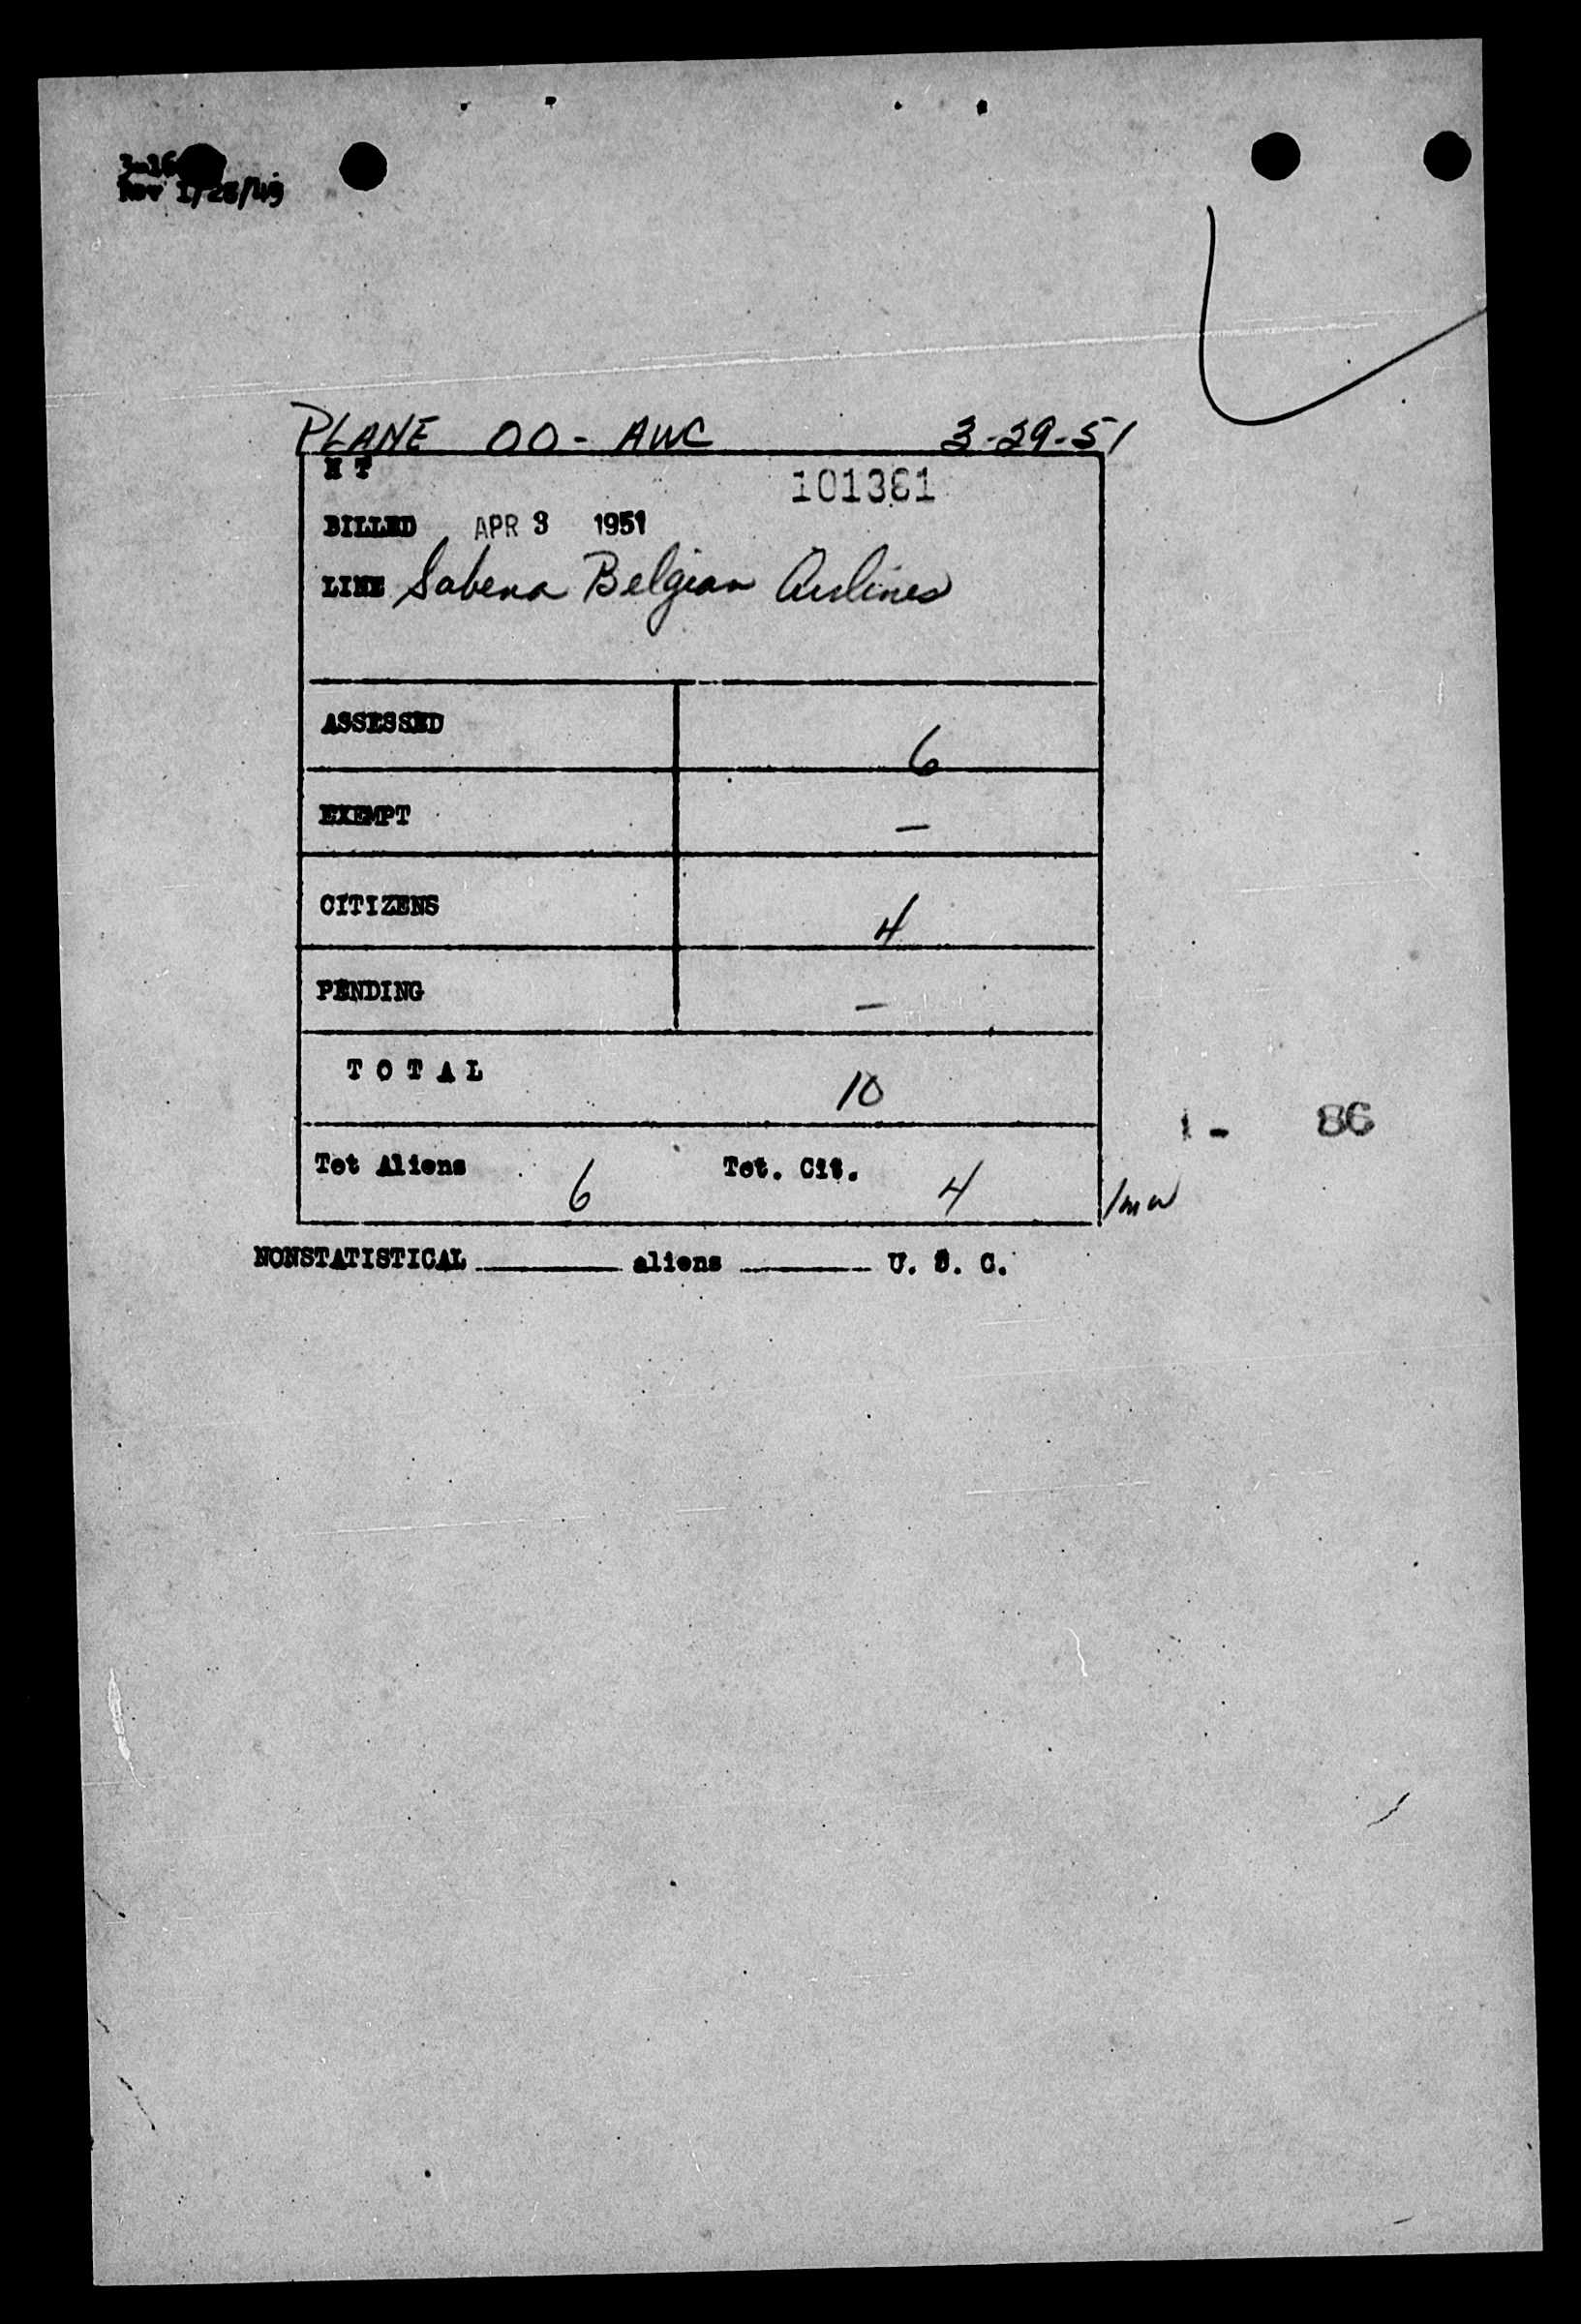 3-16
Rev 1/28/49
PLANE OO- AWC 3-29-51
H T
101361
BILLED APR 3 1951
LINE Sabena Belgian Airlines
ASSESSED 6
EXEMPT —
CITIZENS 4
PENDING —
TOTAL 10
1 - 86
Tot Aliens 6 Tot. Cit. 4 /mw
NONSTATISTICAL ______ aliens ______ U. S. C.